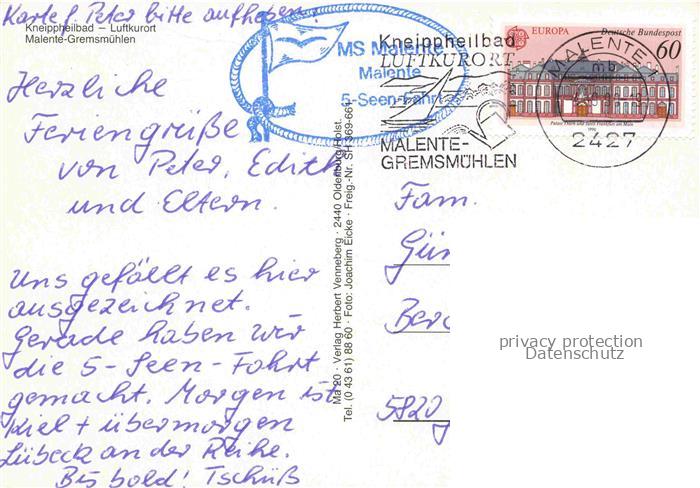 Karte f. Peter bitte aufheben!
Kneippheilbad – Luftkurort
Malente-Gremsmühlen
Herzliche
Feriengrüße
von Peter, Edith
und Eltern.
Uns gefällt es hier
ausgezeichnet.
Gerade haben wir
die 5-Seen-Fahrt
gemacht. Morgen ist
Kiel + übermorgen
Lübeck an der Reihe.
Bis bald! Tschüß
Ma 20 · Verlag Herbert Venneberg · 2440 Oldenburg/Holst.
Tel. (0 43 61) 88 60 · Foto: Joachim Eicke · Freig.-Nr. SH 969-661
MS Malente
Malente
5-Seen-Fahrt
Kneippheilbad
LUFTKURORT
MALENTE-
GREMSMÜHLEN
EUROPA
Deutsche Bundespost
60
MALENTE 1
mb
2427
Fam.
Gün
5820
privacy protection
Datenschutz